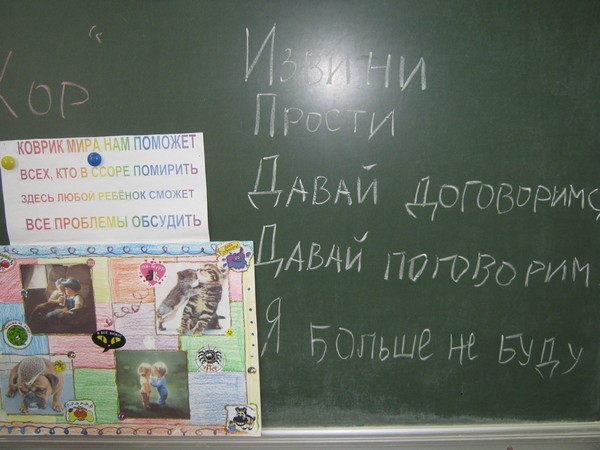 Хор"
Извини
Прости
Давай договоримс
Давай поговорим.
Я больше не буду
КОВРИК МИРА НАМ ПОМОЖЕТ
ВСЕХ, КТО В ССОРЕ ПОМИРИТЬ
ЗДЕСЬ ЛЮБОЙ РЕБЁНОК СМОЖЕТ
ВСЕ ПРОБЛЕМЫ ОБСУДИТЬ